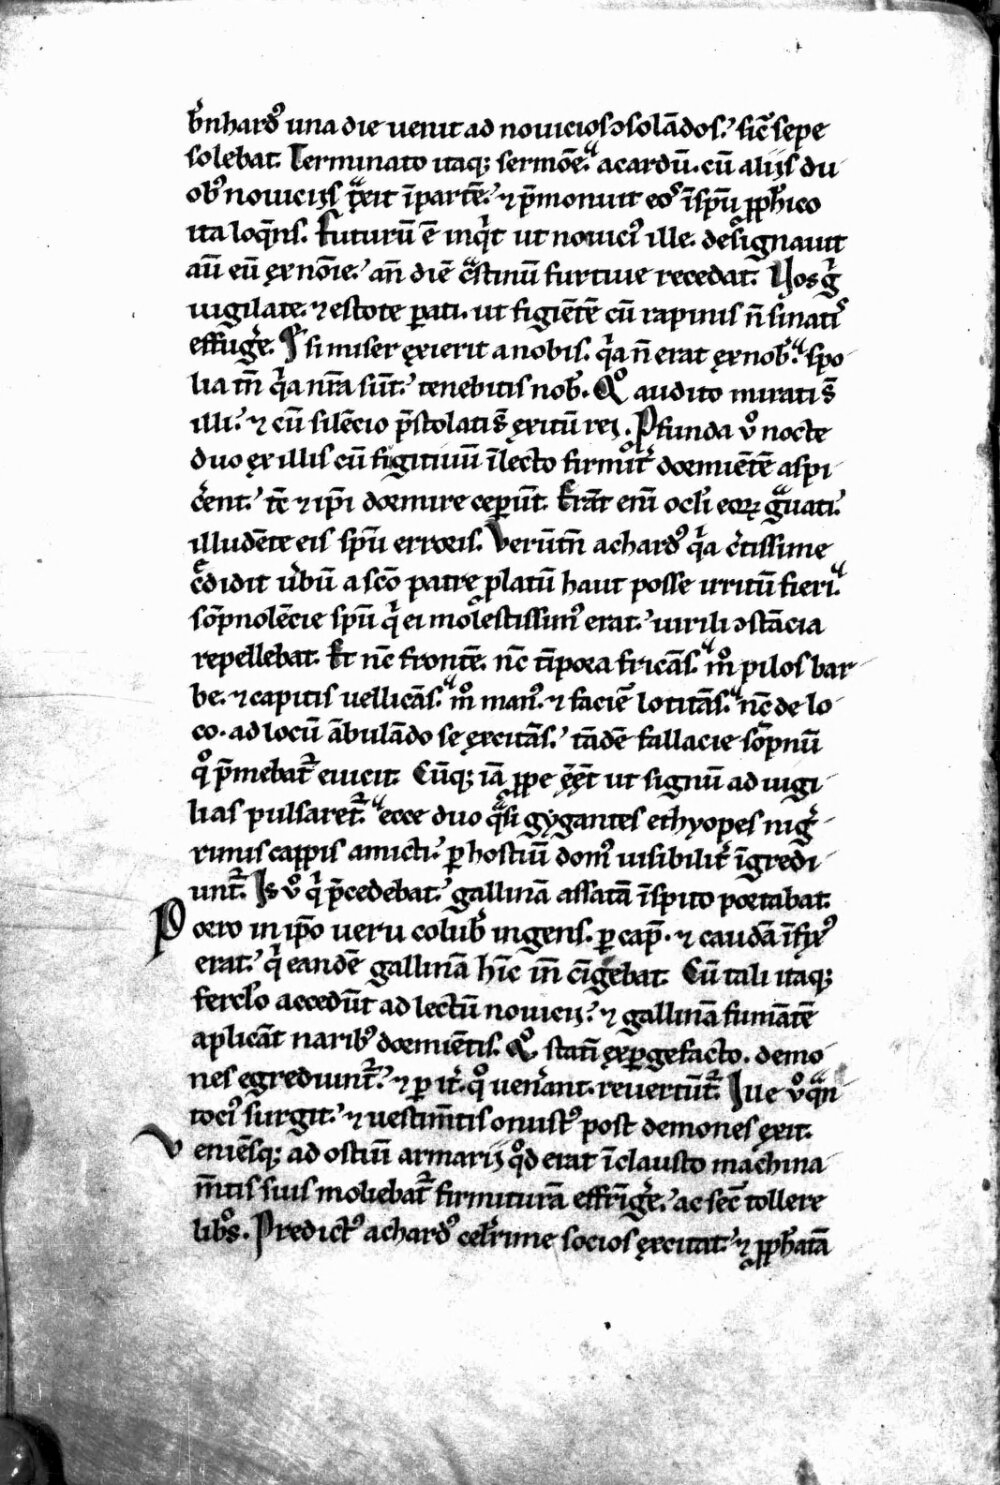 b̓nhardꝰ una die uenit ad nouicios ɔsolādos.' sic̄ sepe
solebat. Terminato itaqꝫ sermōe.' acardū. cū alijs du
obꝰ nouicijs tͣxit īpartē.' ⁊ p̄monuit eoˢ īspū ꝓph̓ico
ita loq̄ns. Futurū ē inqͥt ut nouiciꝰ ille. designauit
aū eū exnoīe.' an̄ diē cͣstinū furtiue recedat. Uos gͥ
uigilate. ⁊ estote ꝑati. ut figiētē cū rapinis n̄ sinatiˢ
effug̓e. Ꝛ si miser exierit a nobis. qͥa n̄ erat exnob̓.' spo
lia tn̄ qͥa nr̄a sūt.' tenebitis nob̓. Qͦ audito mirati s̄
illi.' ⁊ cū silēcio p̄stolati s̄ exitū rei. Ꝓfunda uͦ nocte
duo ex illis cū figitiuū īlecto firmit̓ dormiētē aspi
c̓ent.' tc̄ ⁊ ip̄i dormire ceperūt. Erāt enī ocl̓i eoꝝ gͣuati.'
illudēte eis spū erroris. Verūtn̄ achardꝰ qͥa c̓tissime
c̓didit ūbū a sc̄o patre ꝓlatū haut posse irritū fieri.'
sōpnolēcie spū qͥ ei molestissimꝰ erat.' uirili ɔstācia
repellebat. Et nc̄ frontē. nc̄ tīpora fricās.' mͦ pilos bar
be. ⁊ capitis uellicās.' mͦ manꝰ. ⁊ faciē lotitās.' nc̄ de lo
co. ad locū ābulādo se excitās.' tādē fallacie sōpnū
qͦ p̄mebat̓ eiecit. Cūqꝫ iā ꝓpe eēt ut signū ad uigi
lias pulsaret̓.' ecce duo qͣsi gygantes ethyopes nig̓
rimis cappis amicti.' ꝑ hostiū domꝰ uisibilit̓ īgredi
unt̓. Is uͦ qͥ p̄cedebat.' gallinā assatā īspito portabat.
Porro in ip̄o ueru colub̓ ingens. ꝑ cap̄. ⁊ caudā īfixꝰ
erat.' qͥ eandē gallinā hīc īn cīgebat. Cū tali itaqꝫ
fercl̓o accedūt ad lectū nouicij.' ⁊ gallinā fumātē
aplicāt naribꝰ dormiētis. Qͦ statī exꝑgefacto. demo
nes egrediunt̓.' ⁊ ꝑ it̓. qͦ uen̓ant. reuertūt̓. Iue uͦ qͣn
tociꝰ surgit.' ⁊ uestim̄tis onustꝰ post demones exit.
Veniēsqꝫ ad ostiū armarij qͦd erat īclausto machina
m̄tis suis moliebat̓ firmiturā effrīg̓e.' ac sec̄ tollere
libͦs. Predictꝰ achardꝰ cel̓rime socios excitat.' ⁊ ꝓph̓atā